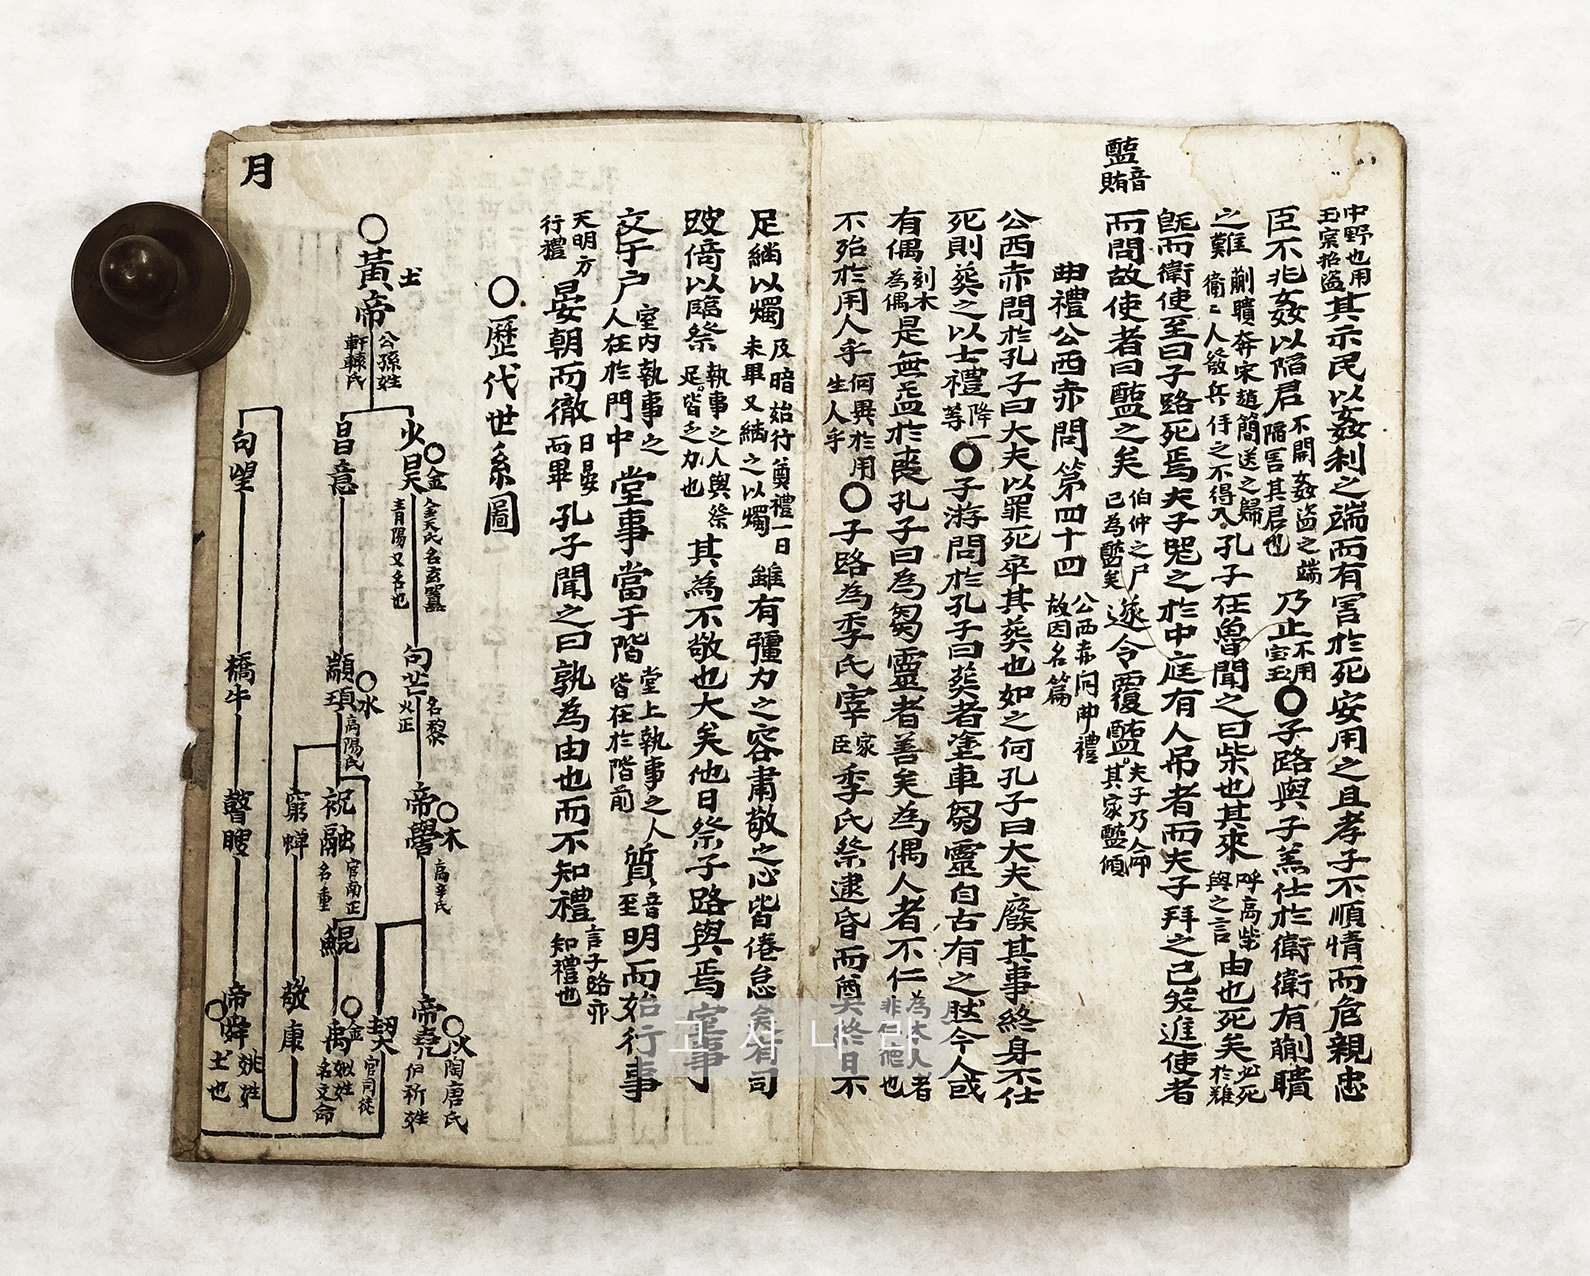 醢音賄
中野也用
玉宲招盜
其示民以姦利之端而有害於死安用之且孝子不順情而危親忠
臣不兆姦以陷君
不開姦盜之端
陷害其君也
乃止
不用
宝玉
○子路與子羔仕於衛衛有蒯聵
之難
蒯聵奔宋趙簡送之歸
衛〻人發兵之不得入
孔子在魯聞之曰柴也其來
呼高柴
與之言
由也死矣
必死
於難
旣而衛使至曰子路死焉夫子哭之於中庭有人吊者而夫子拜之已進使者
而問故使者曰醢之矣
伯仲之尸
已為醢矣
遂令覆醢
夫子乃命
其家醢傾
曲禮公西赤問第四十四
公西赤问曲禮
故因名篇
公西赤問於孔子曰大夫以罪死卒其葬也如之何孔子曰大夫廢其事終身不仕
死則葬之以士禮
降一
等
○子游問於孔子曰葬者塗車芻靈自古有之然今人或
有偶
刻木
為偶
是無益於喪孔子曰為芻靈者善矣為偶人者不仁
為木人者
非但也
不殆於用人乎
何異於用
生人乎
○子路為季氏宰
家
臣
季氏祭逮昏而奠終日不
足繼以燭
及暗始行奠禮一日
未畢又繼之以燭
雖有彊力之容肅敬之心皆倦怠矣有司
跛倚以臨祭
執事之人與祭
足皆乏力也
其為不敬也大矣他日祭子路與焉室事
交于户
室内執事之
人在於門中
堂事當于階
堂上執事之人
皆在於階前
質
音
至
明而始行事
天明方
行禮
晏朝而徹
日晏
而畢
孔子聞之曰孰為由也而不知禮
言子路亦
知禮也
○歷代世系圖
月
○黃帝
土
公孫姓
軒轅氏
火昊
○金
金天氏名玄囂
青陽又名也
句芒
名黎
火正
帝嚳
○木
高辛氏
帝堯
○火
陶唐氏
伊祈姓
契
官司徒
昌意
顓頊
○水
高陽氏
祝融
官南正
名重
鯤
禹
○金
姒姓
名文命
窮蟬
敬康
句望
橋牛
瞽瞍
帝舜
○土也
姚姓
고서나라